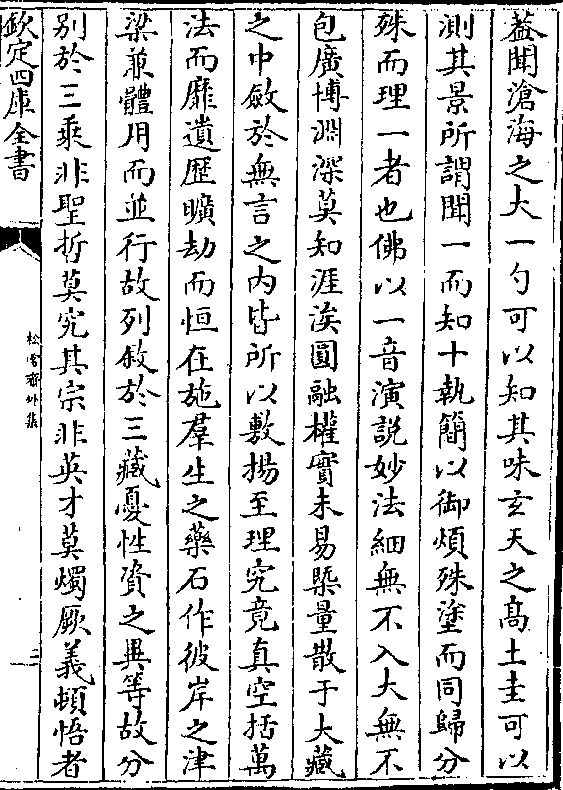 葢聞滄海之大一勺可以知其味玄天之髙土圭可以
測其景所謂聞一而知十執簡以御煩殊塗而同歸分
殊而理一者也佛以一音演說妙法細無不入大無不
包廣博淵深莫知涯涘圓融權實未易槩量散于大藏
之中斂於無言之内皆所以敷揚至理究竟真空括萬
法而靡遺歴曠劫而恒在施羣生之藥石作彼岸之津
梁兼體用而並行故列敘於三藏憂性資之異等故分
别於三乘非聖哲莫究其宗非英才莫燭厥義頓悟者
欽定四庫全書
松雪齋外集
二